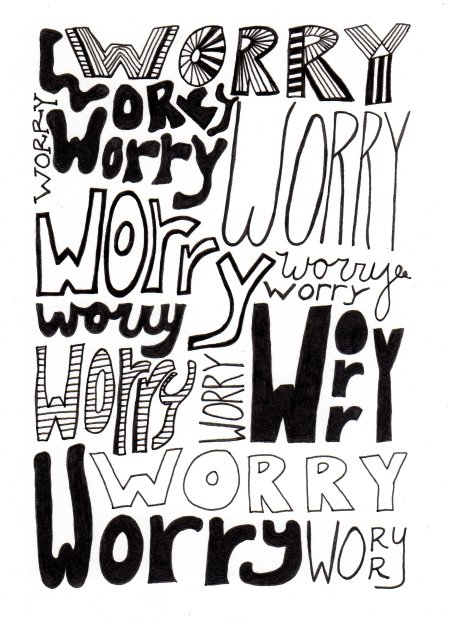 WORRY
WORRY
WORRY
Worry
WORRY
Worry
worry
worry
worry
Worry
WORRY
WorrY
WORRY
Worry
WORRY